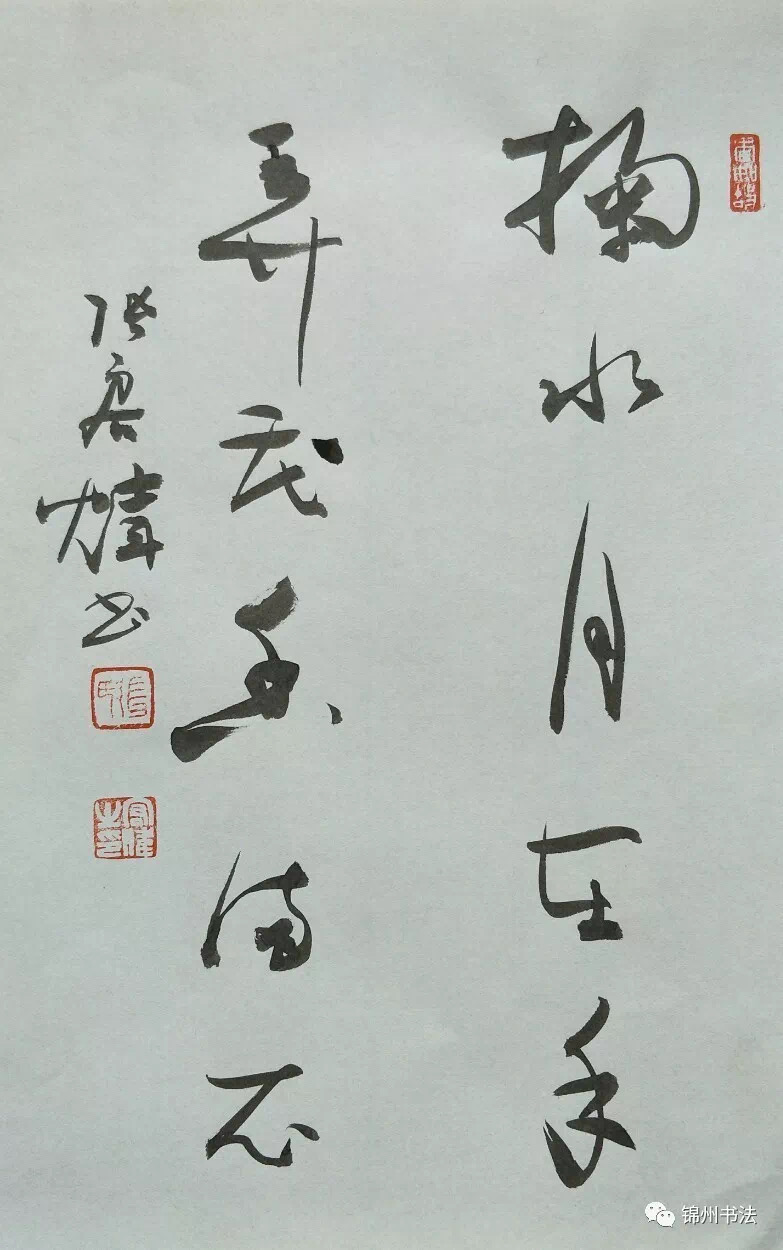 掬水月在手
弄花香满衣
张煒书
锦州书法